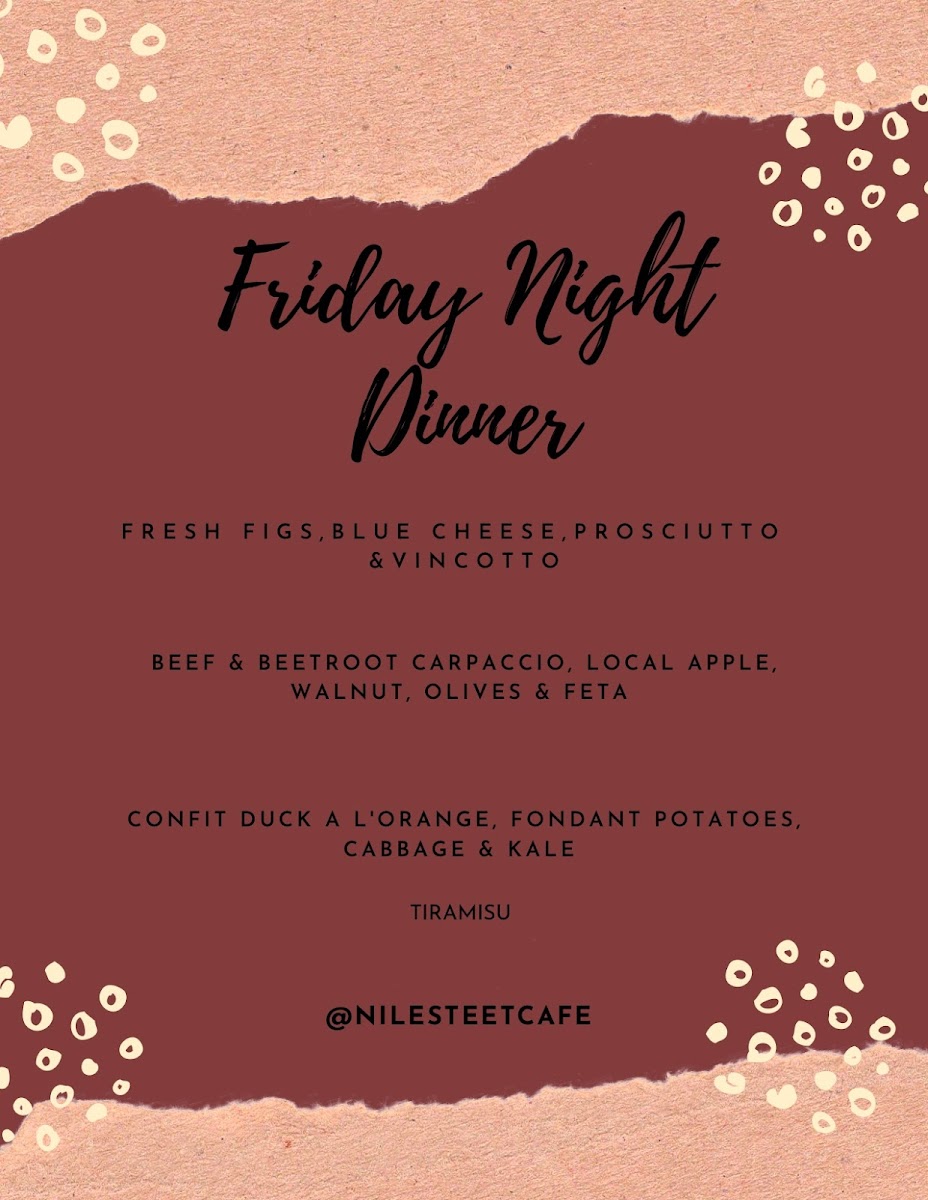 Friday Night
Dinner
FRESH FIGS,BLUE CHEESE,PROSCIUTTO
&VINCOTTO
BEEF & BEETROOT CARPACCIO, LOCAL APPLE,
WALNUT, OLIVES & FETA
CONFIT DUCK A L'ORANGE, FONDANT POTATOES,
CABBAGE & KALE
TIRAMISU
@NILESTEETCAFE